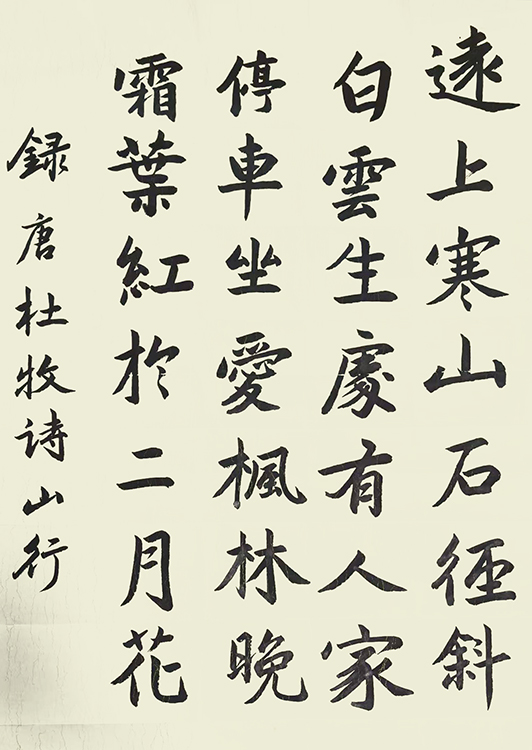 遠上寒山石徑斜
白雲生處有人家
停車坐愛楓林晚
霜葉紅於二月花
録唐杜牧诗山行